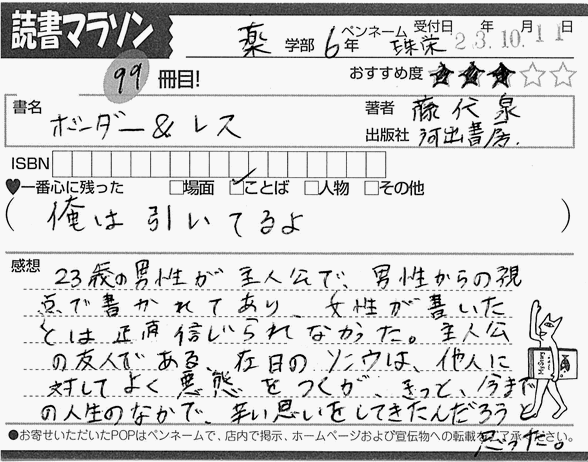 読書マラソン
薬 学部 6年 ペンネーム 珠栄 受付日 年 月 日
23.10.11
99冊目! おすすめ度 ★★★☆☆
書名 ボーダー&レス
著者 藤代泉
出版社 河出書房.
ISBN
♥一番心に残った □場面 ☑ことば □人物 □その他
(俺は引いてるよ)
感想 23歳の男性が主人公で、男性からの視
点で書かれてあり、女性が書いた
とは正直信じられなかった。主人公
の友人である、在日のソンウは、他人に
対してよく悪態をつくが、きっと、今まで
の人生のなかで、辛い思いをしてきたんだろうと
思った。
●お寄せいただいたPOPはペンネームで、店内で掲示、ホームページおよび宣伝物への転載をご了承ください。